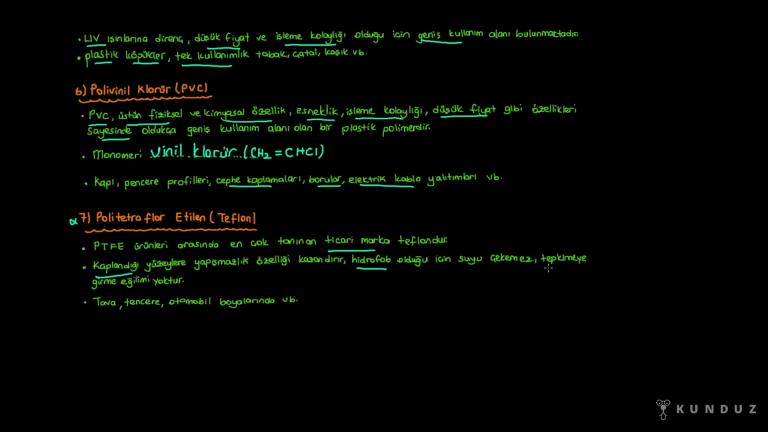 • UV ışınlarına direnç, düşük fiyat ve işleme kolaylığı olduğu için geniş kullanım alanı bulunmaktadır.
• plastik köpükler, tek kullanımlık tabak, çatal, kaşık vb.
6) Polivinil Klorür (PVC)
• PVC, üstün fiziksel ve kimyasal özellik, esneklik, işleme kolaylığı, düşük fiyat gibi özellikleri
sayesinde oldukça geniş kullanım alanı olan bir plastik polimerdir.
• Monomeri Vinil klorür (CH₂ = CHCl)
• Kapı, pencere profilleri, cephe kaplamaları, borular, elektrik kablo yalıtımları vb.
7) Politetraflor Etilen (Teflon)
• PTFE ürünleri arasında en çok tanınan ticari marka teflondur.
• Kaplandığı yüzeylere yapışmazlık özelliği kazandırır, hidrofob olduğu için suyu çekemez, tepkimeye
girme eğilimi yoktur.
• Tava, tencere, otomobil boyalarında vb.
KUNDUZ